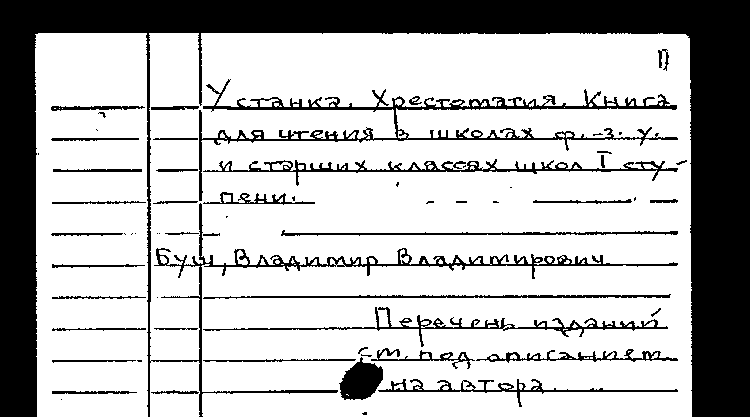 П
У станка. Хрестоматия. Книга
для чтения в школах ф.-з. у.
и старших классах школ I сту-
пени.
Буш, Владимир Владимирович
Перечень изданий
см. под описанием
на автора